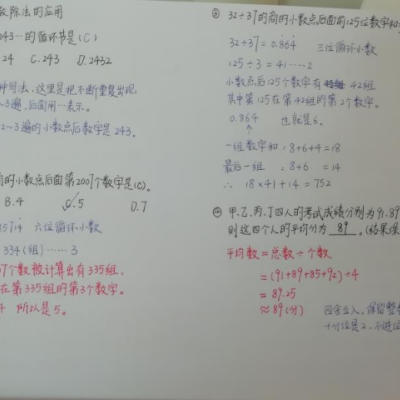 除法的应用
243…的循环节是(C)
24 C.243 D.2432
种写法,这里是把不断重复出现
~3遍,后面用…表示。
2~3遍的小数点后数字是243。
的小数点后面第2007个数字是(C)。
B.4 C.5 D.7
85714 六位循环小数
334(组)……3
07个数被计算出有335组,
在第335组的第3个数字。
所以是5。
② 32÷37的商的小数点后面前125位数字和
32÷37=0.864 三位循环小数
125÷3=41……2
小数点后125个数字有 42组
其中第125在第42组的第2个数字。
0.864 也就是6。
↑
一组数字和:8+6+4=18
最后一组:8+6=14
∴ 18×41+14=752
④ 甲、乙、丙、丁四人的考试成绩分别为91,89
则这四个人的平均分为 89 。(结果保
平均数=总数÷个数
=(91+89+85+92)÷4
=89.25
≈89(分)
四舍五入,保留整
十分位是2,不进位